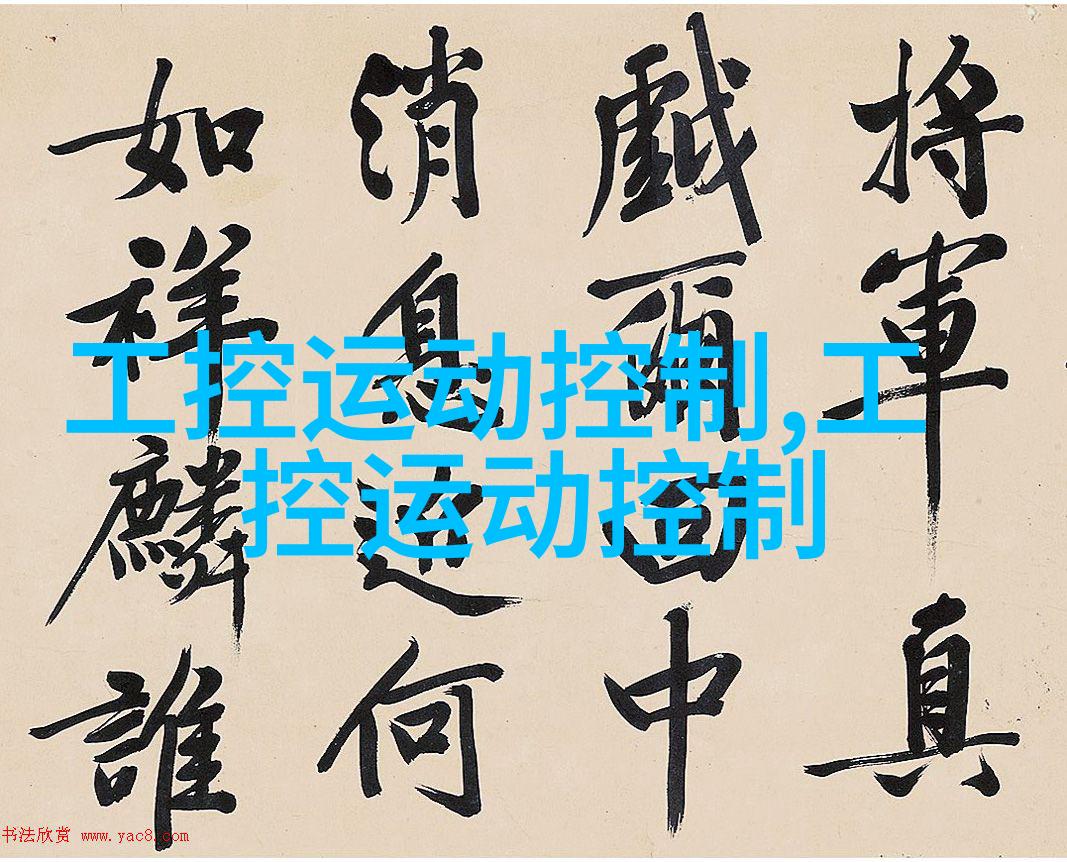 將軍真
戲爾中
消息何
如祥麟誰
工控运动控制,工
控运动控制
书法欣赏 www.yac8.com